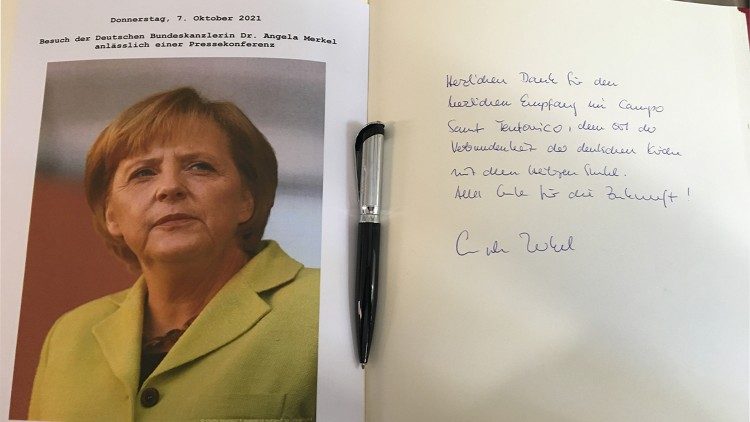 Donnerstag, 7. Oktober 2021
Besuch der Deutschen Bundeskanzlerin Dr. Angela Merkel
anlässlich einer Pressekonferenz
Herzlichen Dank für den
herzlichen Empfang im Campo
Santo Teutonico, dem Ort der
Verbundenheit der deutschen Kirche
mit dem Heiligen Stuhl.
Alles Gute für die Zukunft!
Angela Merkel